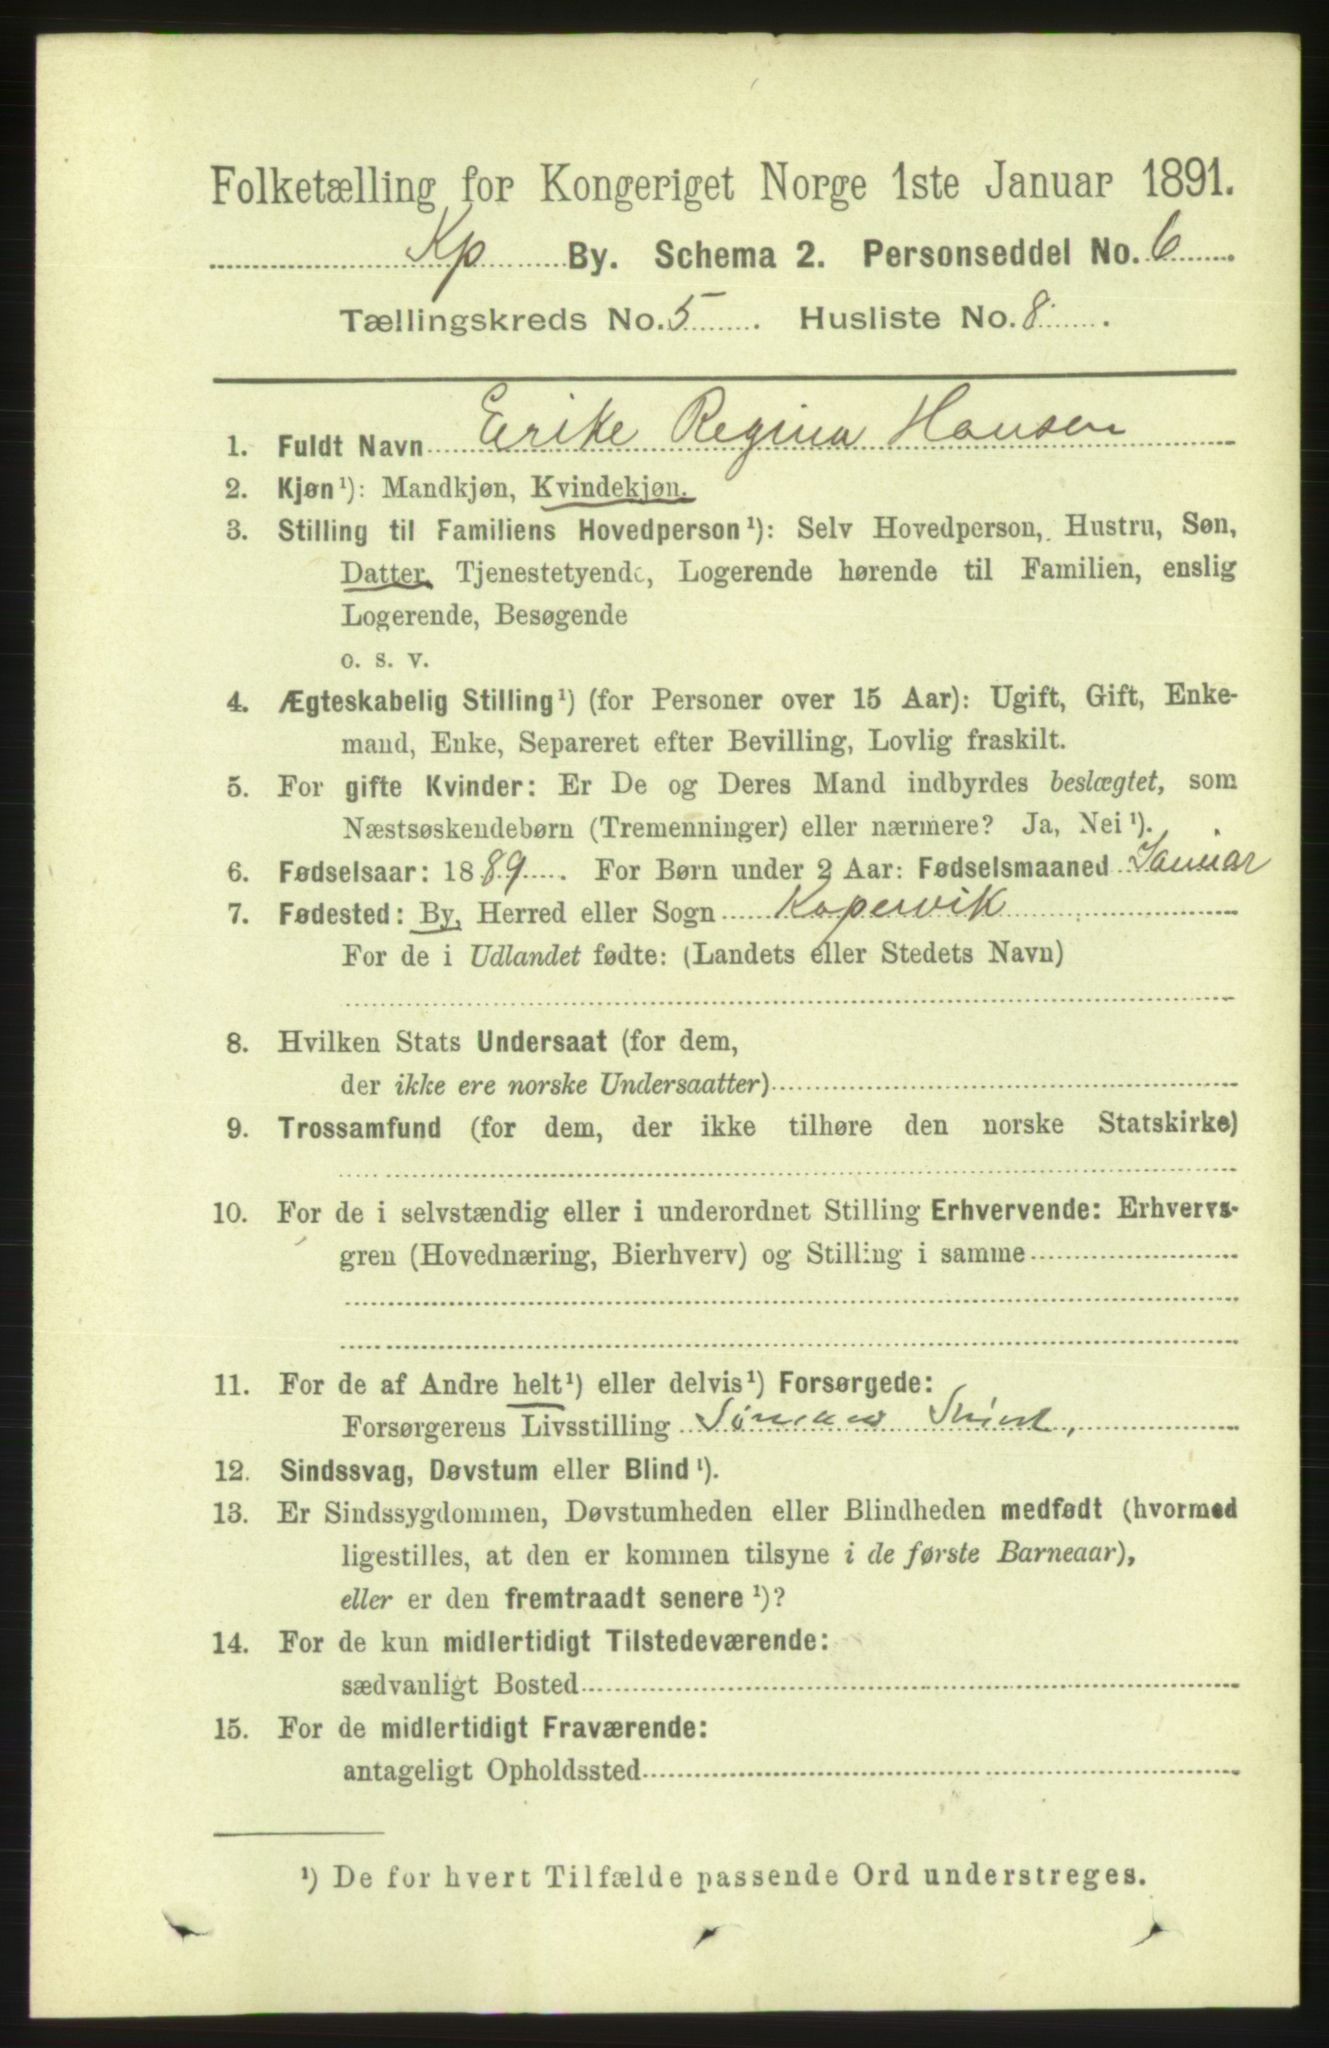 Folketælling for Kongeriget Norge 1ste Januar 1891.
Kp By. Schema 2. Personseddel No. 6
Tællingskreds No. 5. Husliste No. 8.
1. Fuldt Navn Erike Regina Hansen
2. Kjøn¹): Mandkjøn, Kvindekjøn.
3. Stilling til Familiens Hovedperson¹): Selv Hovedperson, Hustru, Søn,
Datter, Tjenestetyende, Logerende hørende til Familien, enslig
Logerende, Besøgende
o. s. v.
4. Ægteskabelig Stilling¹) (for Personer over 15 Aar): Ugift, Gift, Enke-
mand, Enke, Separeret efter Bevilling, Lovlig fraskilt.
5. For gifte Kvinder: Er De og Deres Mand indbyrdes beslægtet, som
Næstsøskendebørn (Tremenninger) eller nærmere? Ja, Nei¹).
6. Fødselsaar: 1889. For Børn under 2 Aar: Fødselsmaaned Januar
7. Fødested: By, Herred eller Sogn Kopervik
For de i Udlandet fødte: (Landets eller Stedets Navn)
8. Hvilken Stats Undersaat (for dem,
der ikke ere norske Undersaatter)
9. Trossamfund (for dem, der ikke tilhøre den norske Statskirke)
10. For de i selvstændig eller i underordnet Stilling Erhvervende: Erhvervs-
gren (Hovednæring, Bierhverv) og Stilling i samme
11. For de af Andre helt¹) eller delvis¹) Forsørgede:
Forsørgerens Livsstilling Sømand
12. Sindssvag, Døvstum eller Blind¹).
13. Er Sindssygdommen, Døvstumheden eller Blindheden medfødt (hvormed
ligestilles, at den er kommen tilsyne i de første Barneaar),
eller er den fremtraadt senere¹)?
14. For de kun midlertidigt Tilstedeværende:
sædvanligt Bosted
15. For de midlertidigt Fraværende:
antageligt Opholdssted
¹) De for hvert Tilfælde passende Ord understreges.